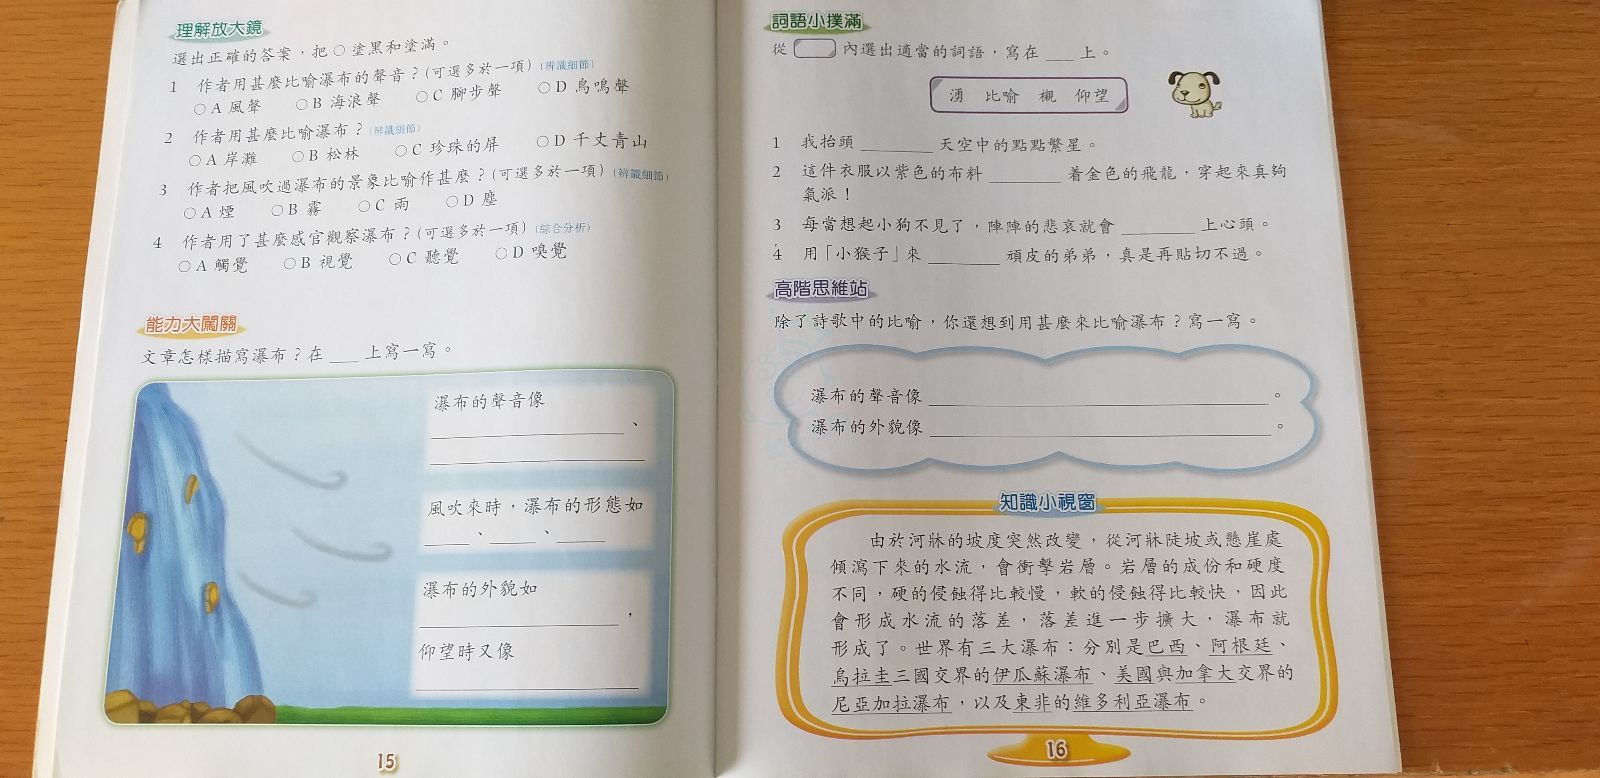 理解放大鏡
選出正確的答案，把○塗黑和塗滿。
1 作者用甚麼比喻瀑布的聲音？(可選多於一項)(辨識細節)
○A 風聲 ○B 海浪聲 ○C 腳步聲 ○D 鳥鳴聲
2 作者用甚麼比喻瀑布？(辨識細節)
○A 岸灘 ○B 松林 ○C 珍珠的屏 ○D 千丈青山
3 作者把風吹過瀑布的景象比喻作甚麼？(可選多於一項)(辨識細節)
○A 煙 ○B 霧 ○C 雨 ○D 塵
4 作者用了甚麼感官觀察瀑布？(可選多於一項)(綜合分析)
○A 觸覺 ○B 視覺 ○C 聽覺 ○D 嗅覺
能力大闖關
文章怎樣描寫瀑布？在___上寫一寫。
瀑布的聲音像
________________、
________________
風吹來時，瀑布的形態如
____、____、____
瀑布的外貌如
________________，
仰望時又像
________________
15
詞語小撲滿
從 內選出適當的詞語，寫在___上。
湧 比喻 襯 仰望
1 我抬頭________天空中的點點繁星。
2 這件衣服以紫色的布料________着金色的飛龍，穿起來真夠
氣派！
3 每當想起小狗不見了，陣陣的悲哀就會________上心頭。
4 用「小猴子」來________頑皮的弟弟，真是再貼切不過。
高階思維站
除了詩歌中的比喻，你還想到用甚麼來比喻瀑布？寫一寫。
瀑布的聲音像________________。
瀑布的外貌像________________。
知識小視窗
由於河牀的坡度突然改變，從河牀陡坡或懸崖處
傾瀉下來的水流，會衝擊岩層。岩層的成份和硬度
不同，硬的侵蝕得比較慢，軟的侵蝕得比較快，因此
會形成水流的落差，落差進一步擴大，瀑布就
形成了。世界有三大瀑布：分別是巴西、阿根廷、
烏拉圭三國交界的伊瓜蘇瀑布、美國與加拿大交界的
尼亞加拉瀑布，以及東非的維多利亞瀑布。
16